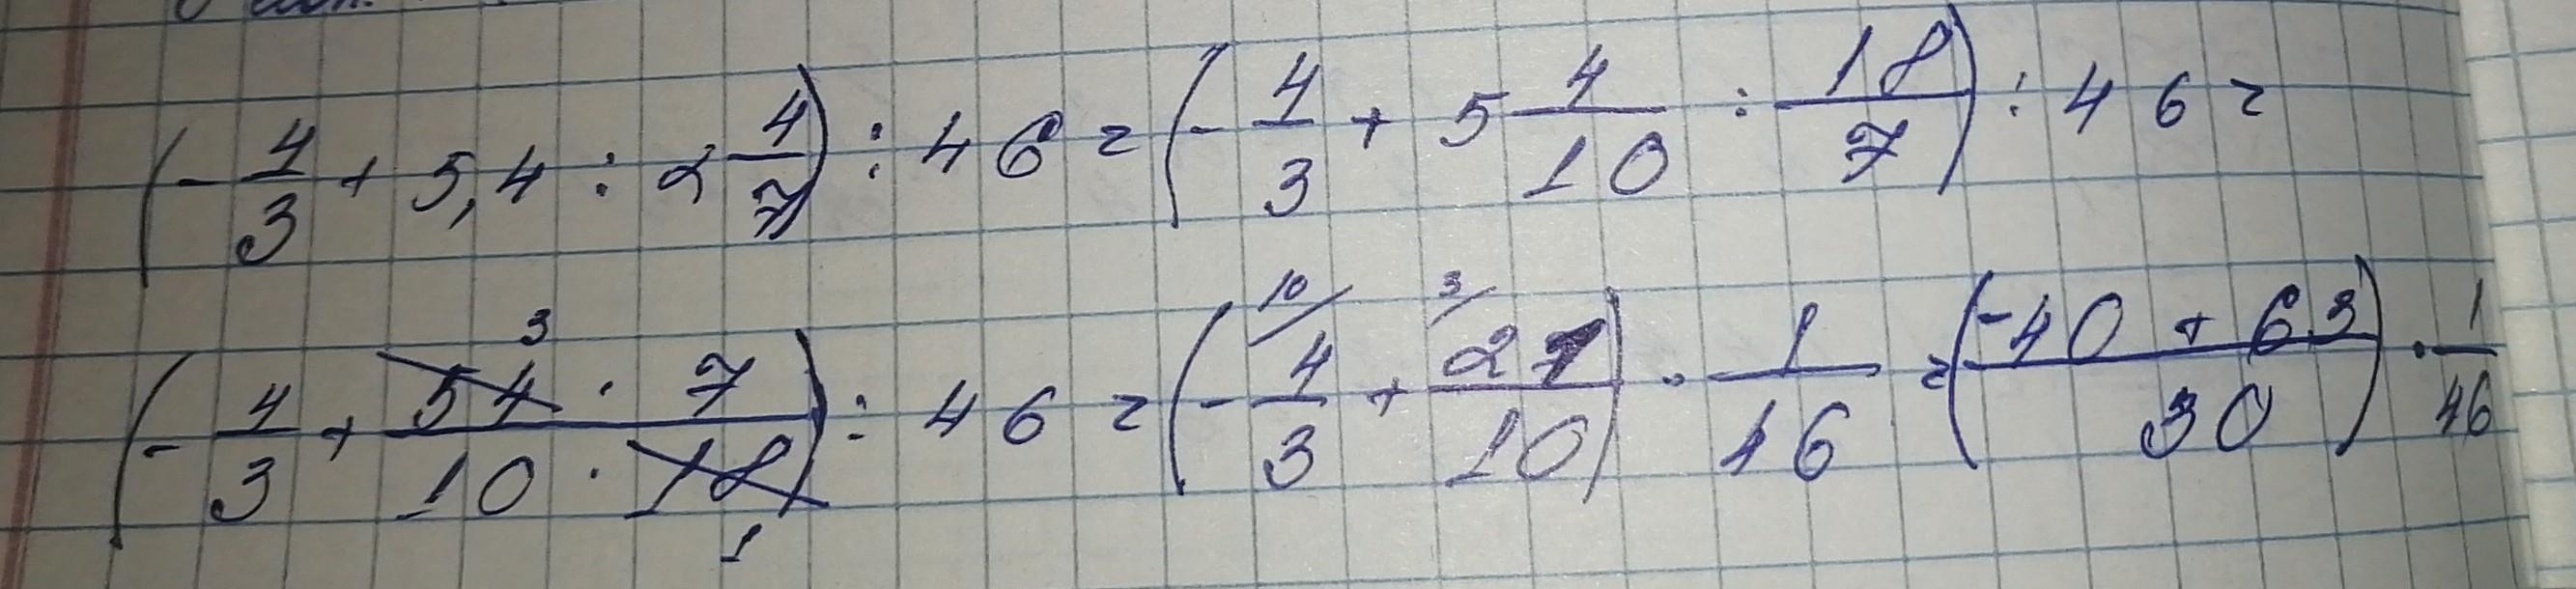 (-4/3 + 5,4 : 2 4/7) : 46 = (-4/3 + 5 4/10 : 18/7) : 46 =
(-4/3 + 54 3 · 7 / 10 · 18 1) : 46 = (-4/3 10/ + 21/10 3/) · 1/46 = (-40 + 63 / 30) · 1/46